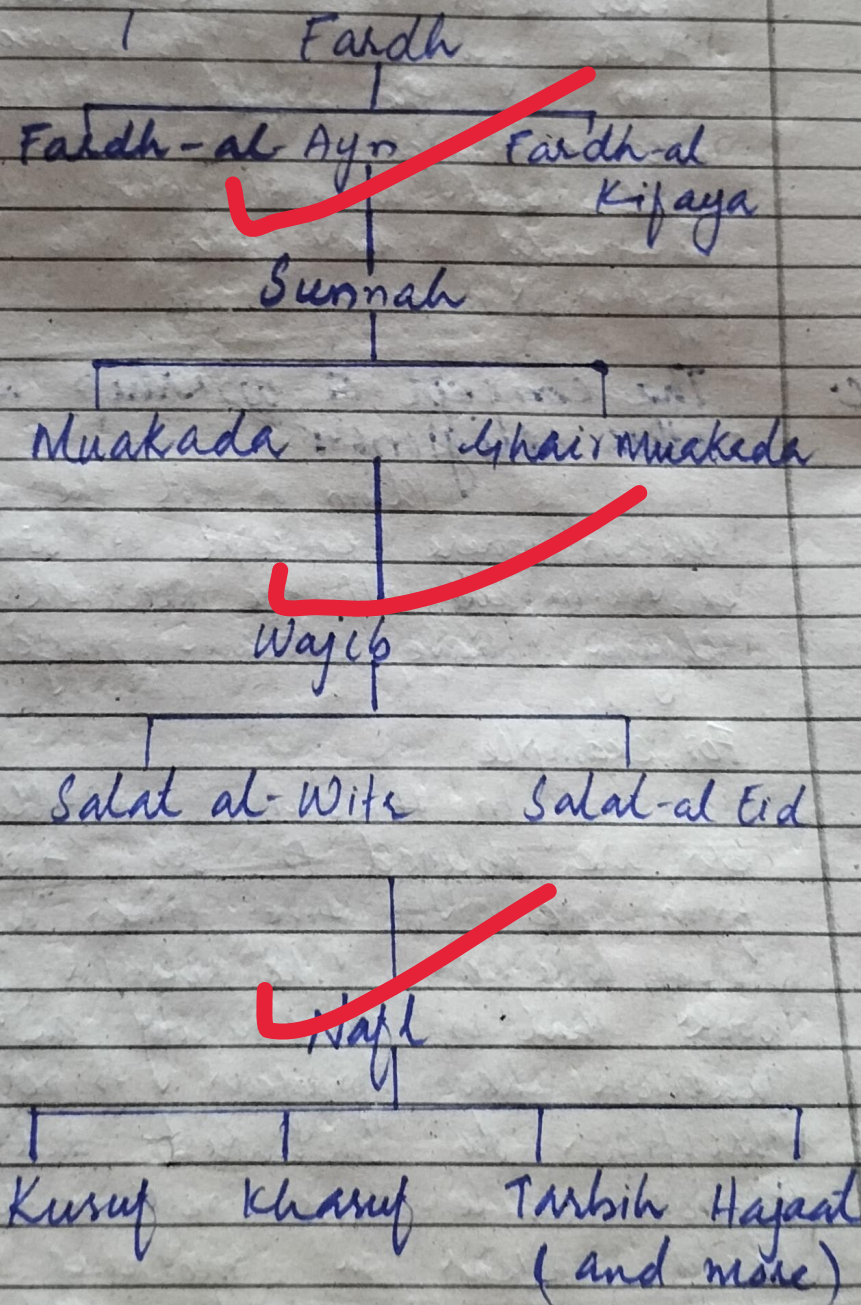 Fardh
Fardh-al-Ayn Fardh-al
Kifaya
Sunnah
Muakada Ghair Muakada
Wajib
Salat al-Witr Salat-al Eid
Nafl
Kusuf Khasuf Tasbih Hajaat
(and more)